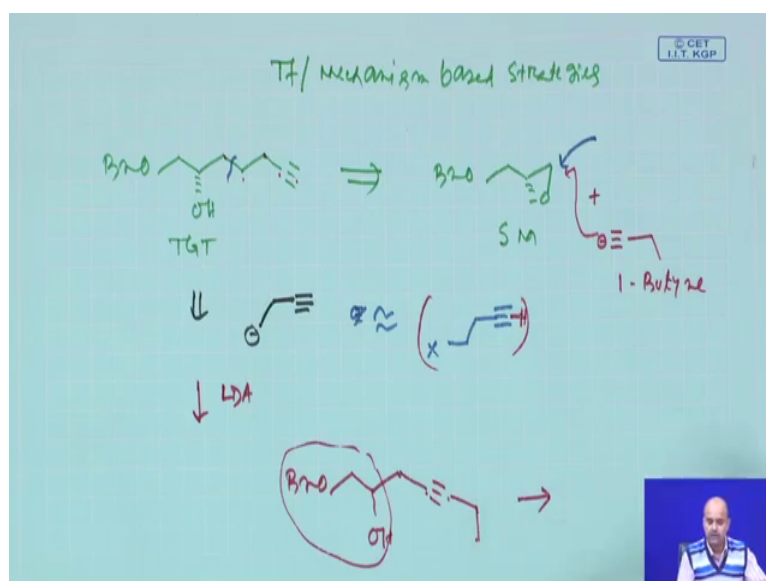 © CET
I.I.T. KGP
T7/ Mechanism based Strategies
BnO
OH
TGT
BnO
O
SM
+
⊖
1-Butyne
⊖
≈
X
H
LDA
BnO
OH